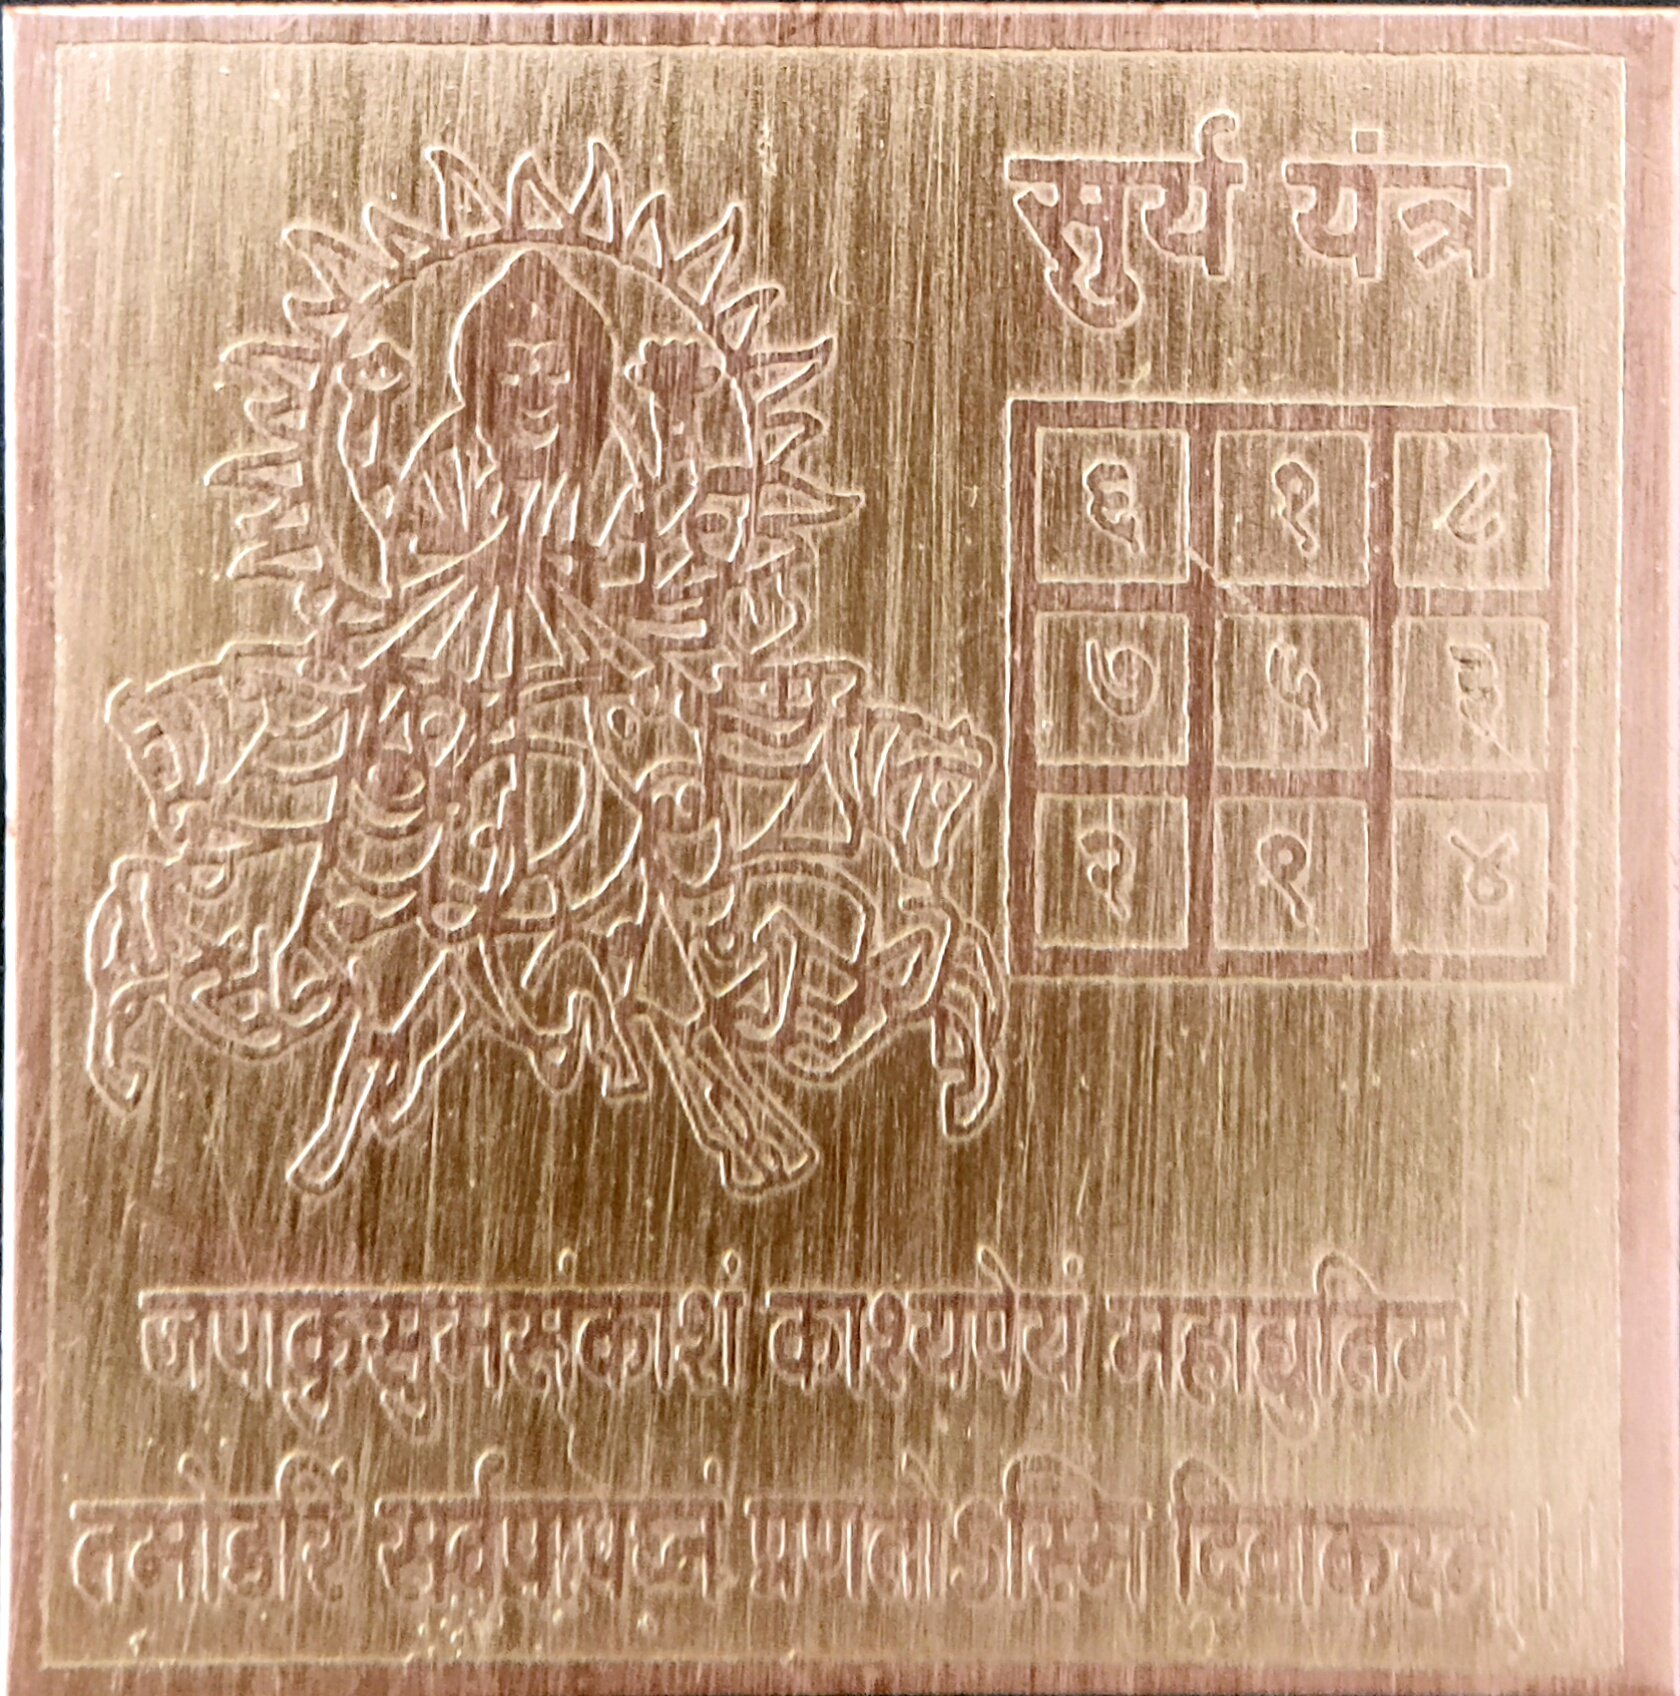 सुर्य यंत्र
६ १ ८
७ ५ ३
२ ९ ४
जपाकुसुमसंकाशं काश्यपेयं महाद्युतिम् ।
तमोहरिं सर्वपापघ्नं प्रणतोऽस्मि दिवाकरम् ॥